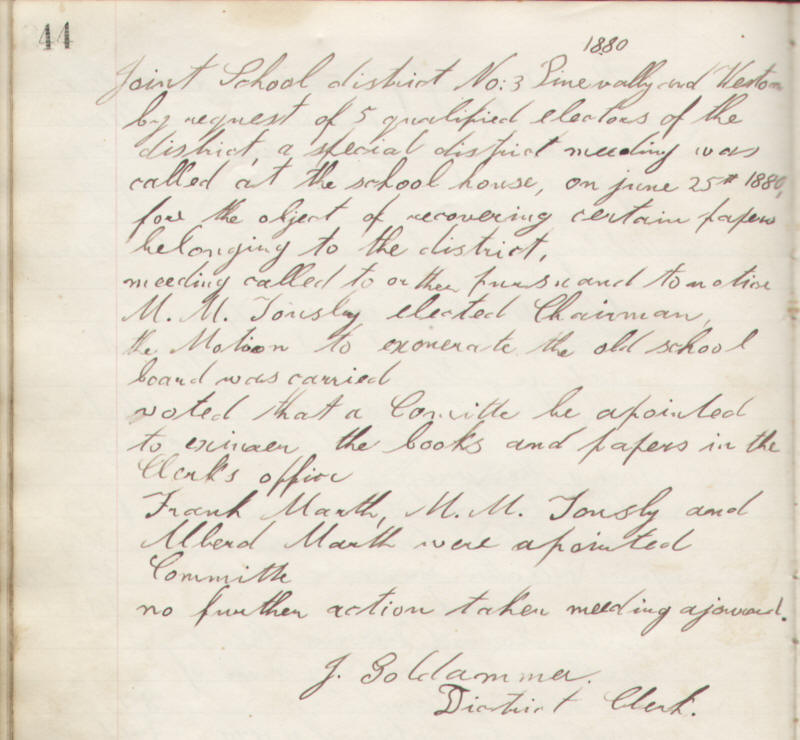 44
1880
Joint School district No: 3 Pinevally and Weston
by request of 5 qualified electors of the
district, a special district meeding was
called at the school house, on june 25th 1880,
fore the object of recovering certain papers
belonging to the district,
meeding called to orther pursuand to notice
M. M. Tously elected Chairman,
the Motion to exonerate the old school
board was carried
voted that a Comitte be apointed
to the books and papers in the
Clerks office
Frank Marth, M. M. Tously and
Alberd Marth were apointed
Committe
no further action taken meeding ajourned.
J. Goldammer.
District Clerk.